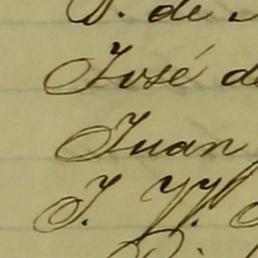 D. de
José de
Juan
J. W.